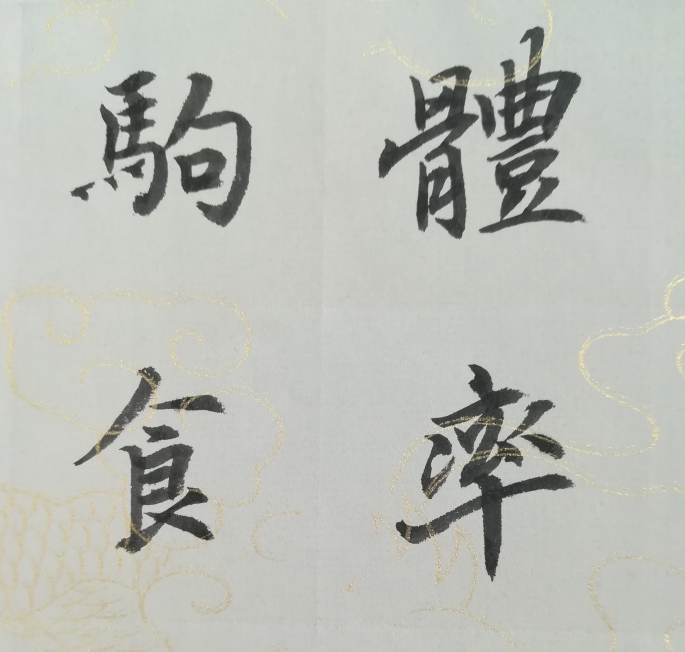 體率
駒食